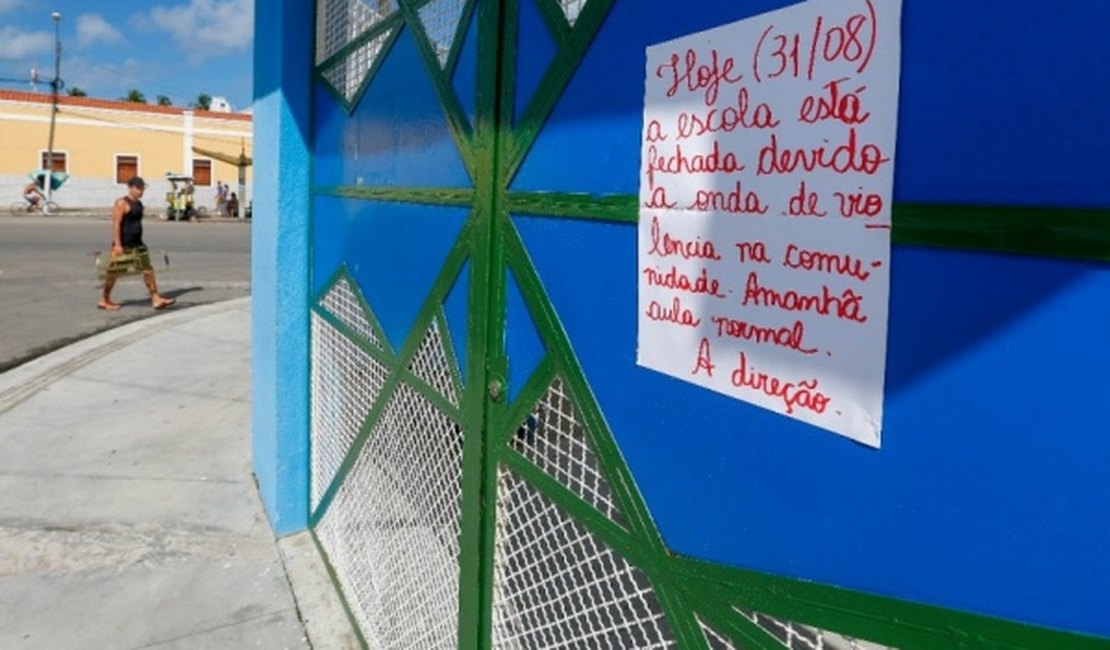 Hoje (31/08)
a escola está
fechada devido
a onda de vio
lencia na comu-
nidade. Amanhã
aula normal.
A direção.